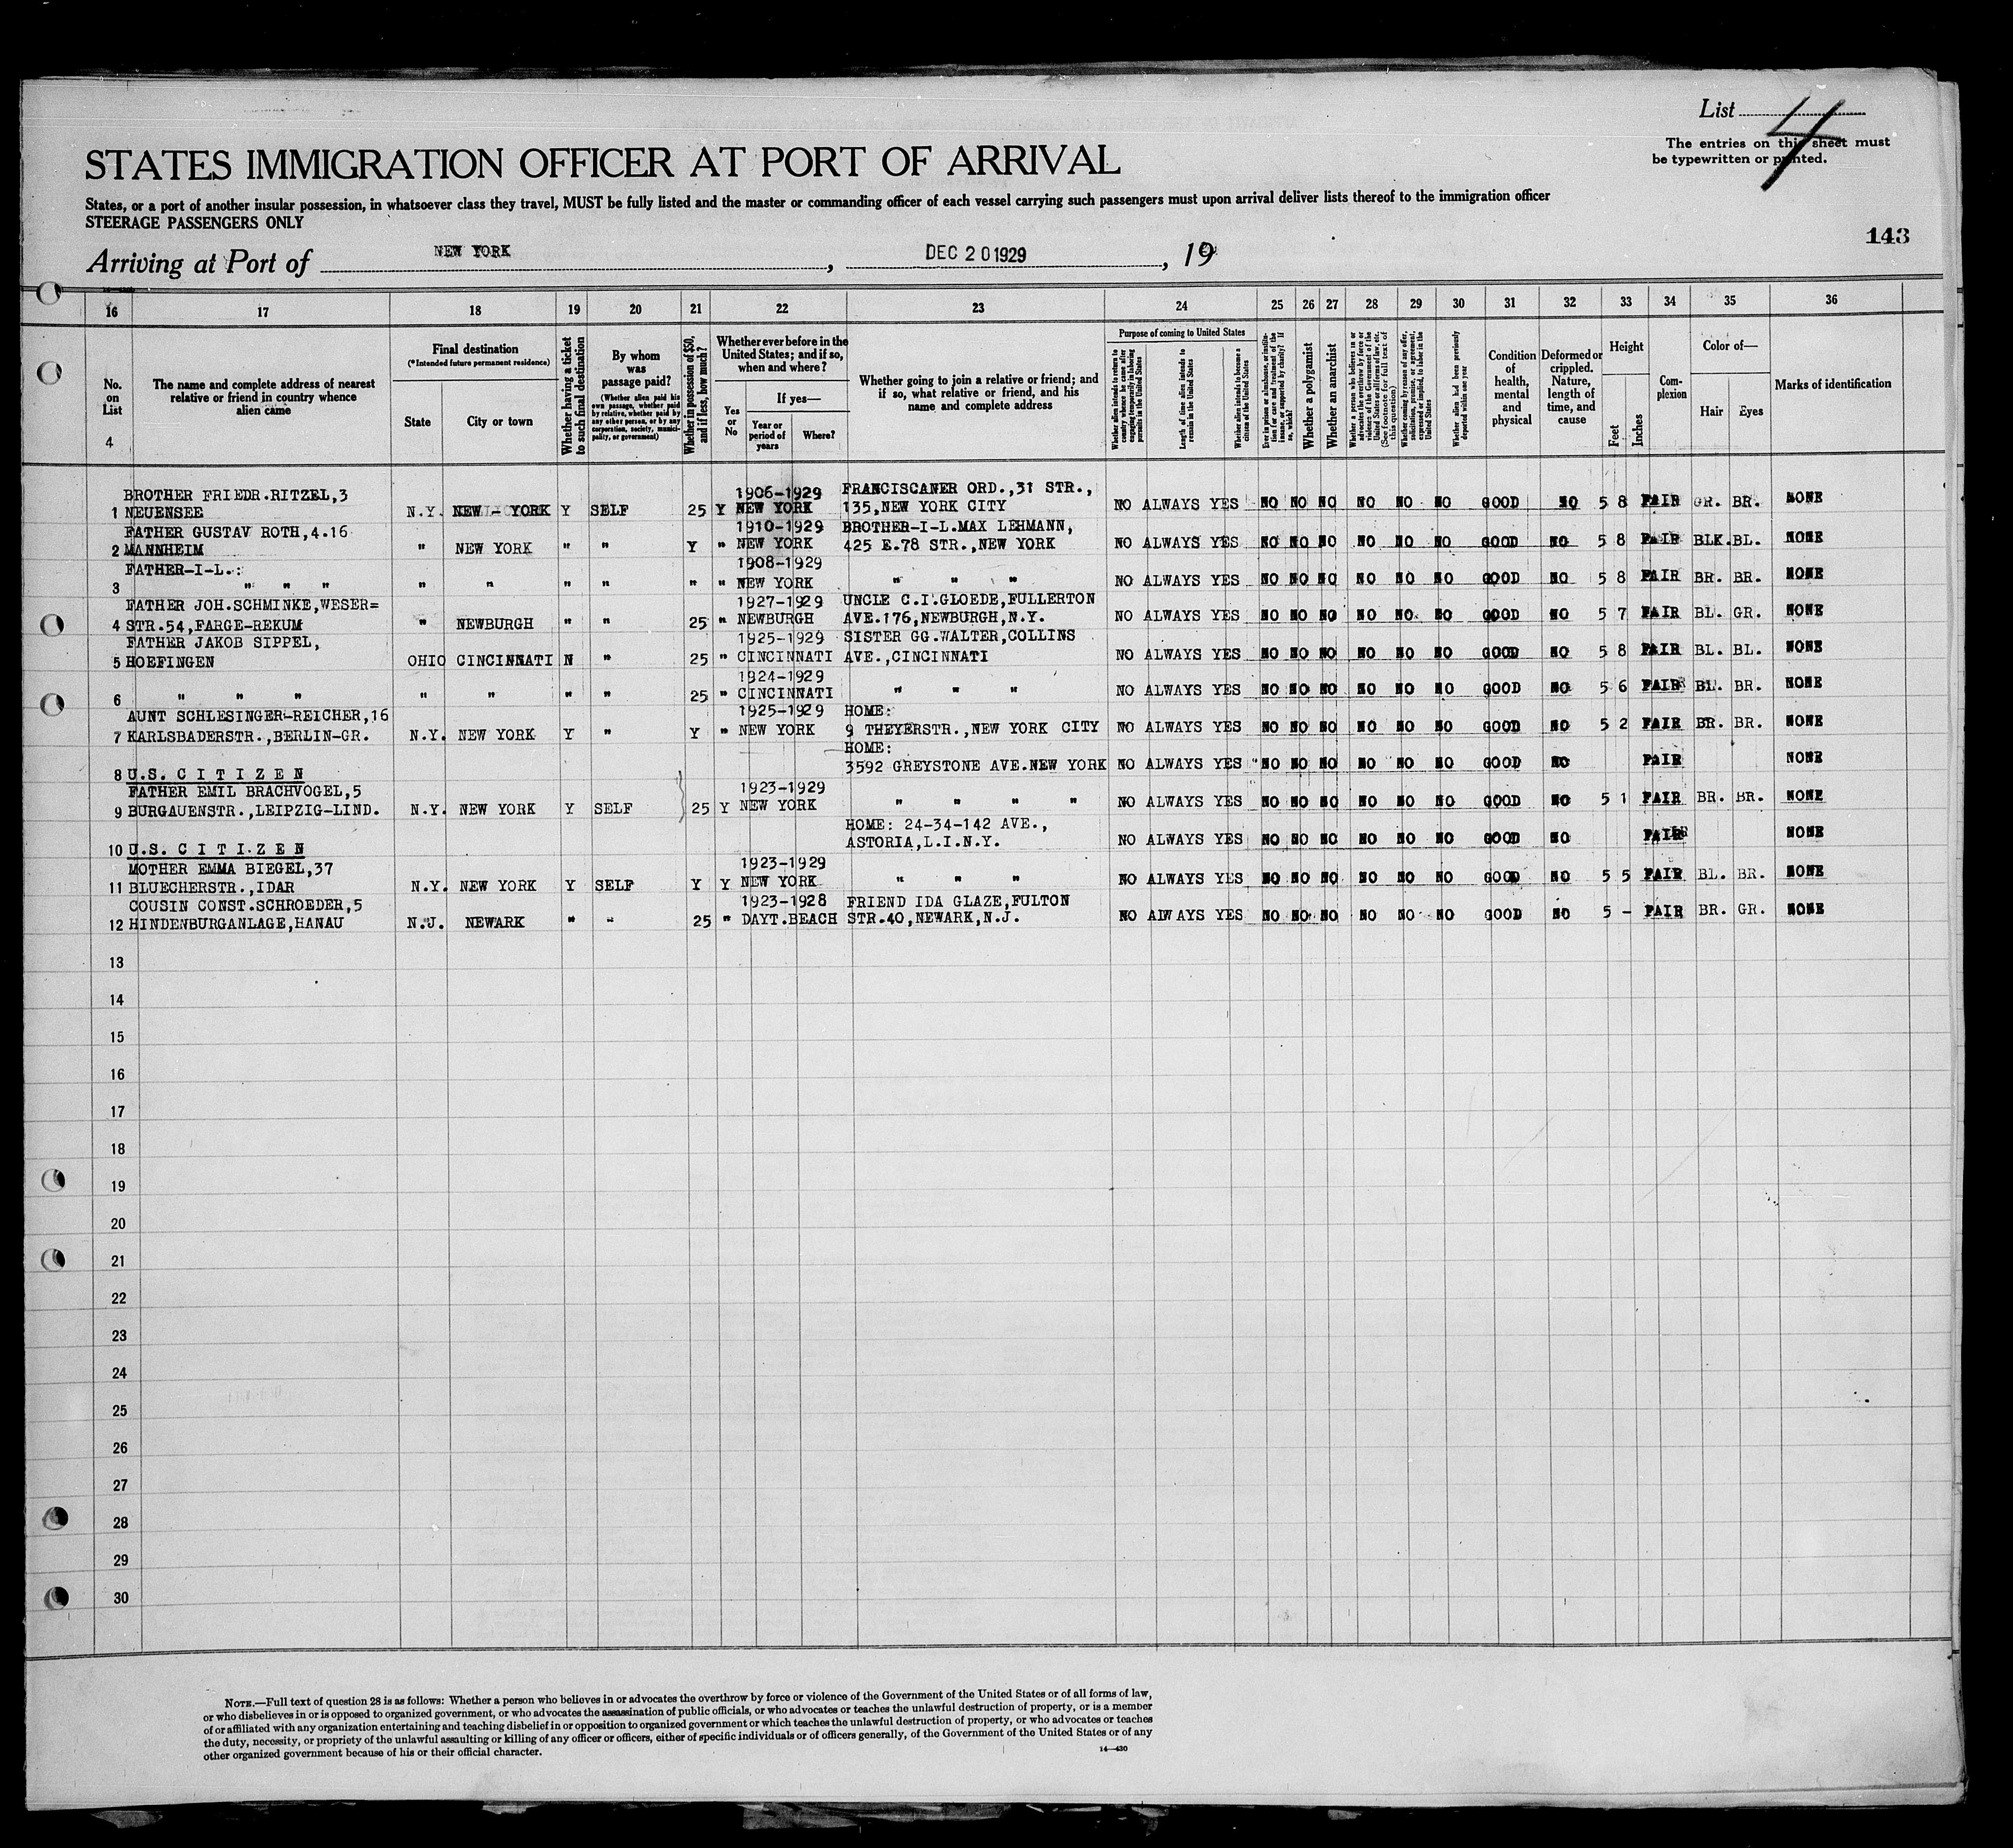 List 4
The entries on this sheet must
be typewritten or printed.
STATES IMMIGRATION OFFICER AT PORT OF ARRIVAL
States, or a port of another insular possession, in whatsoever class they travel, MUST be fully listed and the master or commanding officer of each vessel carrying such passengers must upon arrival deliver lists thereof to the immigration officer
STEERAGE PASSENGERS ONLY
143
Arriving at Port of NEW YORK, DEC 20 1929, 19
16 17 18 19 20 21 22 23 24 25 26 27 28 29 30 31 32 33 34 35 36
No. on List
4
The name and complete address of nearest relative or friend in country whence alien came
Final destination
(*Intended future permanent residence)
State
City or town
Whether having a ticket to such final destination
By whom was passage paid?
(Whether alien paid his own passage, whether paid by relative, whether paid by any other person, or by any corporation, society, municipality, or government)
Whether in possession of $50, and if less, how much?
Whether ever before in the United States; and if so, when and where?
Yes or No
If yes—
Year or period of years
Where?
Whether going to join a relative or friend; and if so, what relative or friend, and his name and complete address
Purpose of coming to United States
Whether alien intends to return to country whence he came after engaging temporarily in laboring pursuits in the United States
Length of time alien intends to remain in the United States
Whether alien intends to become a citizen of the United States
Ever in prison or almshouse, or institution for care and treatment of the insane, or supported by charity? If so, which?
Whether a polygamist
Whether an anarchist
Whether a person who believes in or advocates the overthrow by force or violence of the Government of the United States or all forms of law, etc. (See footnote for full text of this question)
Whether coming by reason of any offer, solicitation, promise, or agreement, expressed or implied, to labor in the United States
Whether alien had been previously deported within one year
Condition of health, mental and physical
Deformed or crippled. Nature, length of time, and cause
Height
Feet
Inches
Complexion
Color of—
Hair
Eyes
Marks of identification
BROTHER FRIEDR.RITZEL,3 1906-1929 FRANCISCANER ORD.,31 STR.,
1 NEUENSEE N.Y. NEW - YORK Y SELF 25 Y NEW YORK 135,NEW YORK CITY NO ALWAYS YES NO NO NO NO NO NO GOOD NO 5 8 FAIR GR. BR. NONE
FATHER GUSTAV ROTH,4.16 1910-1929 BROTHER-I-L.MAX LEHMANN,
2 MANNHEIM " NEW YORK " " Y " NEW YORK 425 E.78 STR.,NEW YORK NO ALWAYS YES NO NO NO NO NO NO GOOD NO 5 8 FAIR BLK. BL. NONE
FATHER-I-L.: 1908-1929
3 " " " " " " " " " NEW YORK " " " NO ALWAYS YES NO NO NO NO NO NO GOOD NO 5 8 FAIR BR. BR. NONE
FATHER JOH.SCHMINKE,WESER= 1927-1929 UNCLE C.I.GLOEDE,FULLERTON
4 STR.54,FARGE-REKUM " NEWBURGH " " 25 " NEWBURGH AVE.176,NEWBURGH,N.Y. NO ALWAYS YES NO NO NO NO NO NO GOOD NO 5 7 FAIR BL. GR. NONE
FATHER JAKOB SIPPEL, 1925-1929 SISTER GG.WALTER,COLLINS
5 HOEFINGEN OHIO CINCINNATI N " 25 " CINCINNATI AVE.,CINCINNATI NO ALWAYS YES NO NO NO NO NO NO GOOD NO 5 8 FAIR BL. BL. NONE
1924-1929
6 " " " " " " " 25 " CINCINNATI " " " NO ALWAYS YES NO NO NO NO NO NO GOOD NO 5 6 FAIR BL. BR. NONE
AUNT SCHLESINGER-REICHER,16 1925-1929 HOME:
7 KARLSBADERSTR.,BERLIN-GR. N.Y. NEW YORK Y " Y " NEW YORK 9 THEYERSTR.,NEW YORK CITY NO ALWAYS YES NO NO NO NO NO NO GOOD NO 5 2 FAIR BR. BR. NONE
HOME:
8 U.S. C I T I Z E N 3592 GREYSTONE AVE.NEW YORK NO ALWAYS YES NO NO NO NO NO NO GOOD NO FAIR NONE
FATHER EMIL BRACHVOGEL,5 1923-1929
9 BURGAUENSTR.,LEIPZIG-LIND. N.Y. NEW YORK Y SELF 25 Y NEW YORK " " " " NO ALWAYS YES NO NO NO NO NO NO GOOD NO 5 1 FAIR BR. BR. NONE
HOME: 24-34-142 AVE.,
10 U.S. C I T I Z E N ASTORIA,L.I.N.Y. NO ALWAYS YES NO NO NO NO NO NO GOOD NO FAIR NONE
MOTHER EMMA BIEGEL,37 1923-1929
11 BLUECHERSTR.,IDAR N.Y. NEW YORK Y SELF Y Y NEW YORK " " " NO ALWAYS YES NO NO NO NO NO NO GOOD NO 5 5 FAIR BL. BR. NONE
COUSIN CONST.SCHROEDER,5 1923-1928 FRIEND IDA GLAZE,FULTON
12 HINDENBURGANLAGE,HANAU N.J. NEWARK " " 25 " DAYT.BEACH STR.40,NEWARK,N.J. NO ALWAYS YES NO NO NO NO NO NO GOOD NO 5 - FAIR BR. GR. NONE
13
14
15
16
17
18
19
20
21
22
23
24
25
26
27
28
29
30
NOTE.—Full text of question 28 is as follows: Whether a person who believes in or advocates the overthrow by force or violence of the Government of the United States or of all forms of law,
or who disbelieves in or is opposed to organized government, or who advocates the assassination of public officials, or who advocates or teaches the unlawful destruction of property, or is a member
of or affiliated with any organization entertaining and teaching disbelief in or opposition to organized government or which teaches the unlawful destruction of property, or who advocates or teaches
the duty, necessity, or propriety of the unlawful assaulting or killing of any officer or officers, either of specific individuals or of officers generally, of the Government of the United States or of any
other organized government because of his or their official character.
14—430